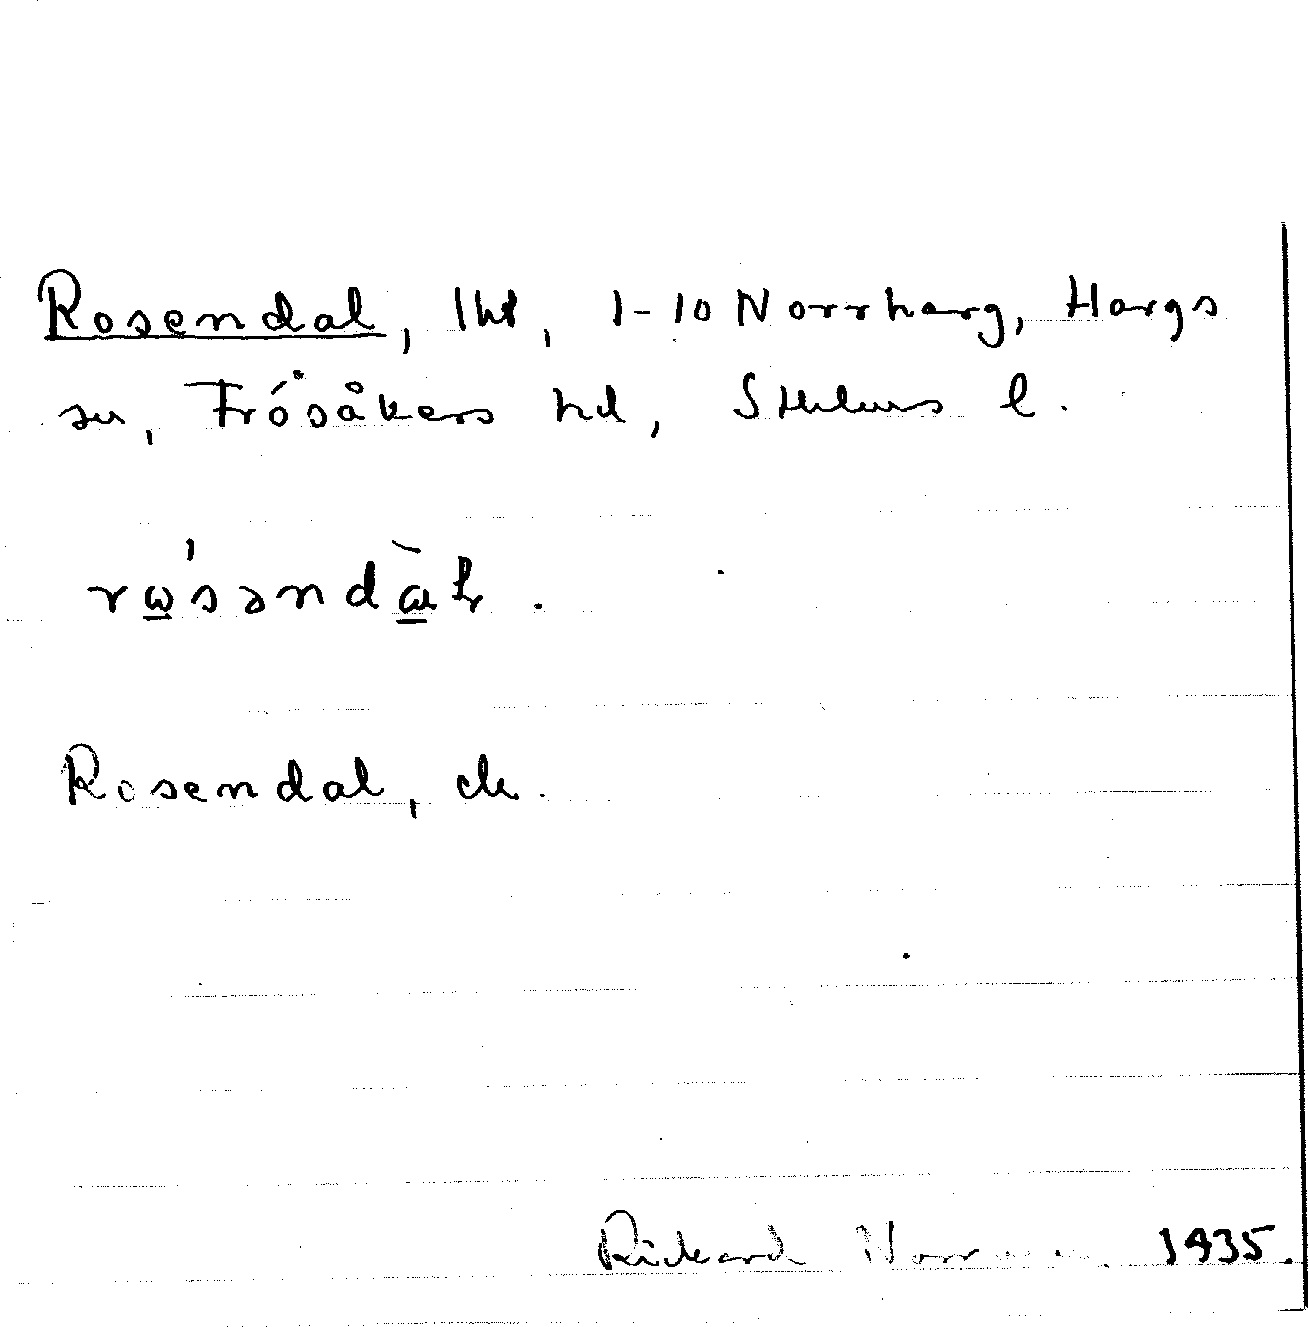 Rosendal, lht, 1-10 Norrharg, Hargs
sn, Frösåkers hd, Sthlms l.
rώ̲səndɑ̲̀ɫ.
Rosendal, ek.
Rickard Norrman 1935.